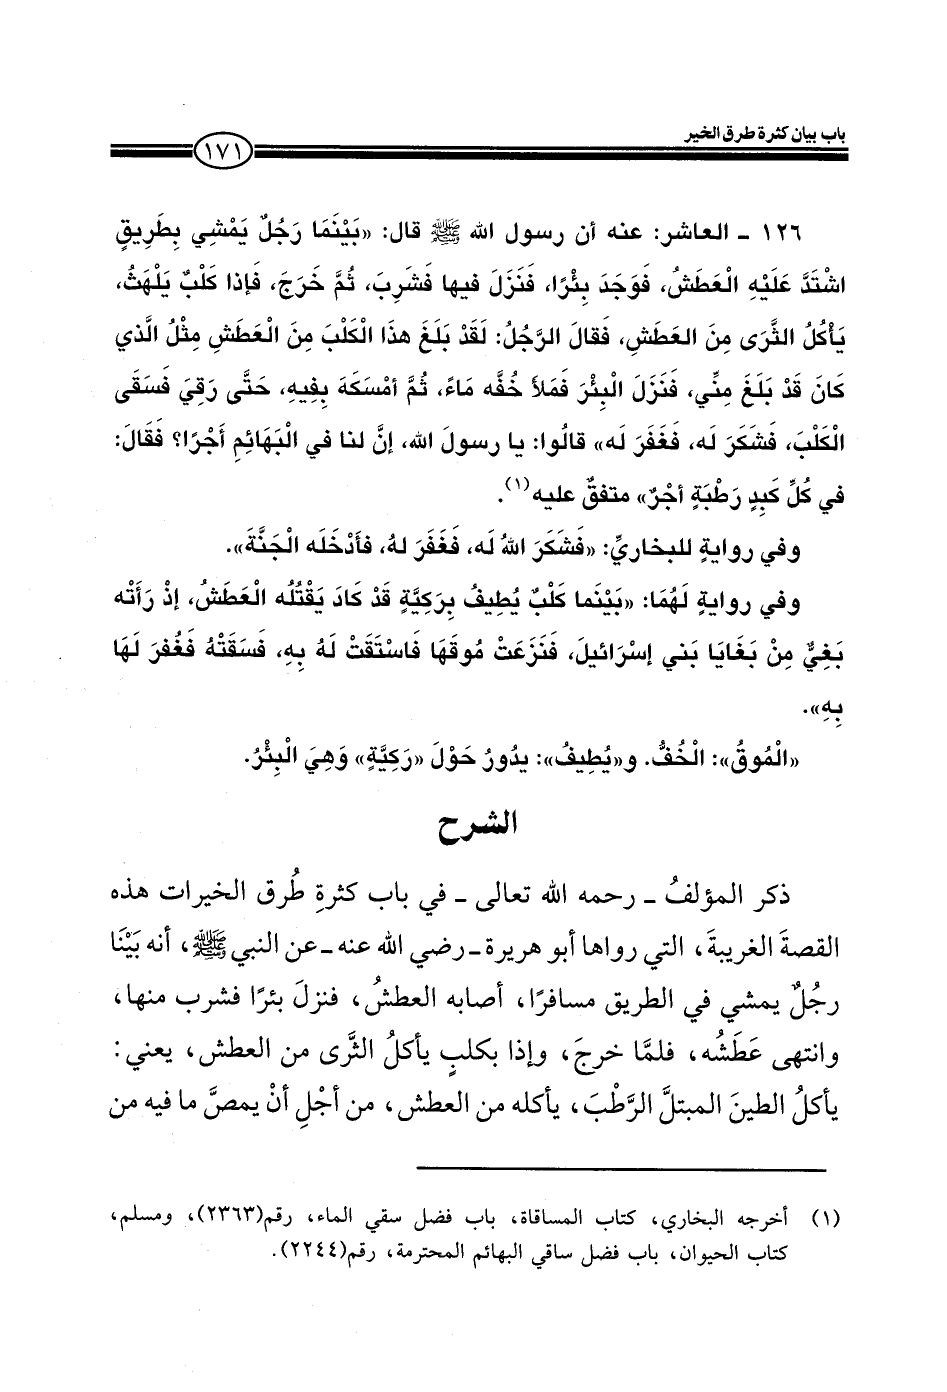 باب بيان كثرة طرق الخير
١٧١
١٢٦ ـ العاشر: عنه أن رسول الله ﷺ قال: «بَيْنَمَا رَجُلٌ يَمْشِي بِطَرِيقٍ
اشْتَدَّ عَلَيْهِ الْعَطَشُ، فَوَجَدَ بِئْرًا، فَنَزَلَ فيها فَشَرِبَ، ثُمَّ خَرَجَ، فَإذا كَلْبٌ يَلْهَثُ،
يَأْكُلُ الثَّرَى مِنَ العَطَشِ، فَقالَ الرَّجُلُ: لَقَدْ بَلَغَ هذا الْكَلْبَ مِنَ الْعَطَشِ مِثْلُ الَّذي
كَانَ قَدْ بَلَغَ مِنِّي، فَنَزَلَ الْبِئْرَ فَمَلأَ خُفَّه مَاءً، ثُمَّ أمْسَكَهَ بِفِيهِ، حَتَّى رَقِيَ فَسَقَى
الْكَلْبَ، فَشَكَرَ لَه، فَغَفَرَ لَه» قالُوا: يا رسولَ الله، إنَّ لنا في الْبَهَائِمِ أَجْرًا؟ فَقَالَ:
في كُلِّ كَبِدٍ رَطْبَةٍ أجْرٌ» متفقٌ عليه(١).
وفي روايةٍ للبخاريِّ: «فَشَكَرَ اللهُ لَه، فَغَفَرَ لهُ، فَأدْخَلَه الْجَنَّةَ».
وفي روايةٍ لَهُمَا: «بَيْنَما كَلْبٌ يُطِيفُ بِرَكِيَّةٍ قَدْ كَادَ يَقْتُلُه الْعَطَشُ، إذْ رَأَتْه
بَغِيٌّ مِنْ بَغَايَا بَني إسْرَائيلَ، فَنَزَعَتْ مُوقَهَا فَاسْتَقَتْ لَهُ بِهِ، فَسَقَتْهُ فَغُفرَ لَهَا
بِهِ».
«الْمُوقُ»: الْخُفُّ. و«يُطِيفُ»: يدُورُ حَوْلَ «رَكِيَّةٍ» وَهِيَ الْبِئْرُ.
الشرح
ذكر المؤلفُ ـ رحمه الله تعالى ـ في باب كثرةِ طُرق الخيرات هذه
القصةَ الغريبةَ، التي رواها أبو هريرة ـ رضي الله عنه ـ عن النبي ﷺ، أنه بَيْنَا
رجُلٌ يمشي في الطريق مسافرًا، أصابه العطشُ، فنزلَ بئرًا فشرب منها،
وانتهى عَطَشُه، فلمَّا خرجَ، وإذا بكلبٍ يأكلُ الثَّرى من العطش، يعني:
يأكلُ الطينَ المبتلَّ الرَّطْبَ، يأكله من العطش، من أجْلِ أنْ يمصَّ ما فيه من
(١) أخرجه البخاري، كتاب المساقاة، باب فضل سقي الماء، رقم(٢٣٦٣)، ومسلم،
كتاب الحيوان، باب فضل ساقي البهائم المحترمة، رقم(٢٢٤٤).